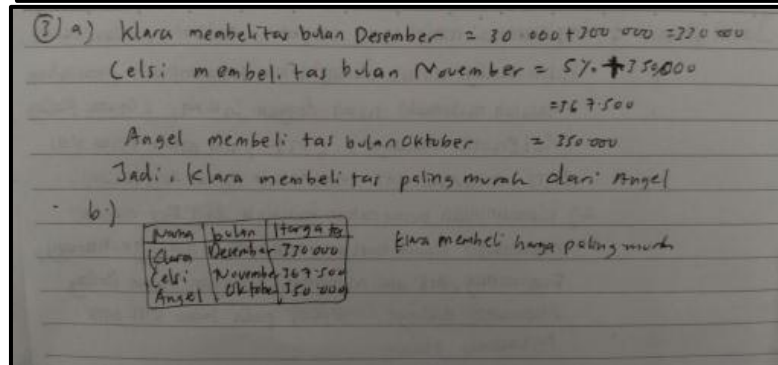 ③ a) Klara membeli tas bulan Desember = 30.000 + 300.000 = 330.000
Celsi membeli tas bulan November = 5% + 350.000
= 367.500
Angel membeli tas bulan Oktober = 350.000
Jadi, Klara membeli tas paling murah dari Angel
b.)
Nama bulan Harga tas
Klara Desember 330.000
Celsi November 367.500
Angel Oktober 350.000
Klara membeli harga paling murah